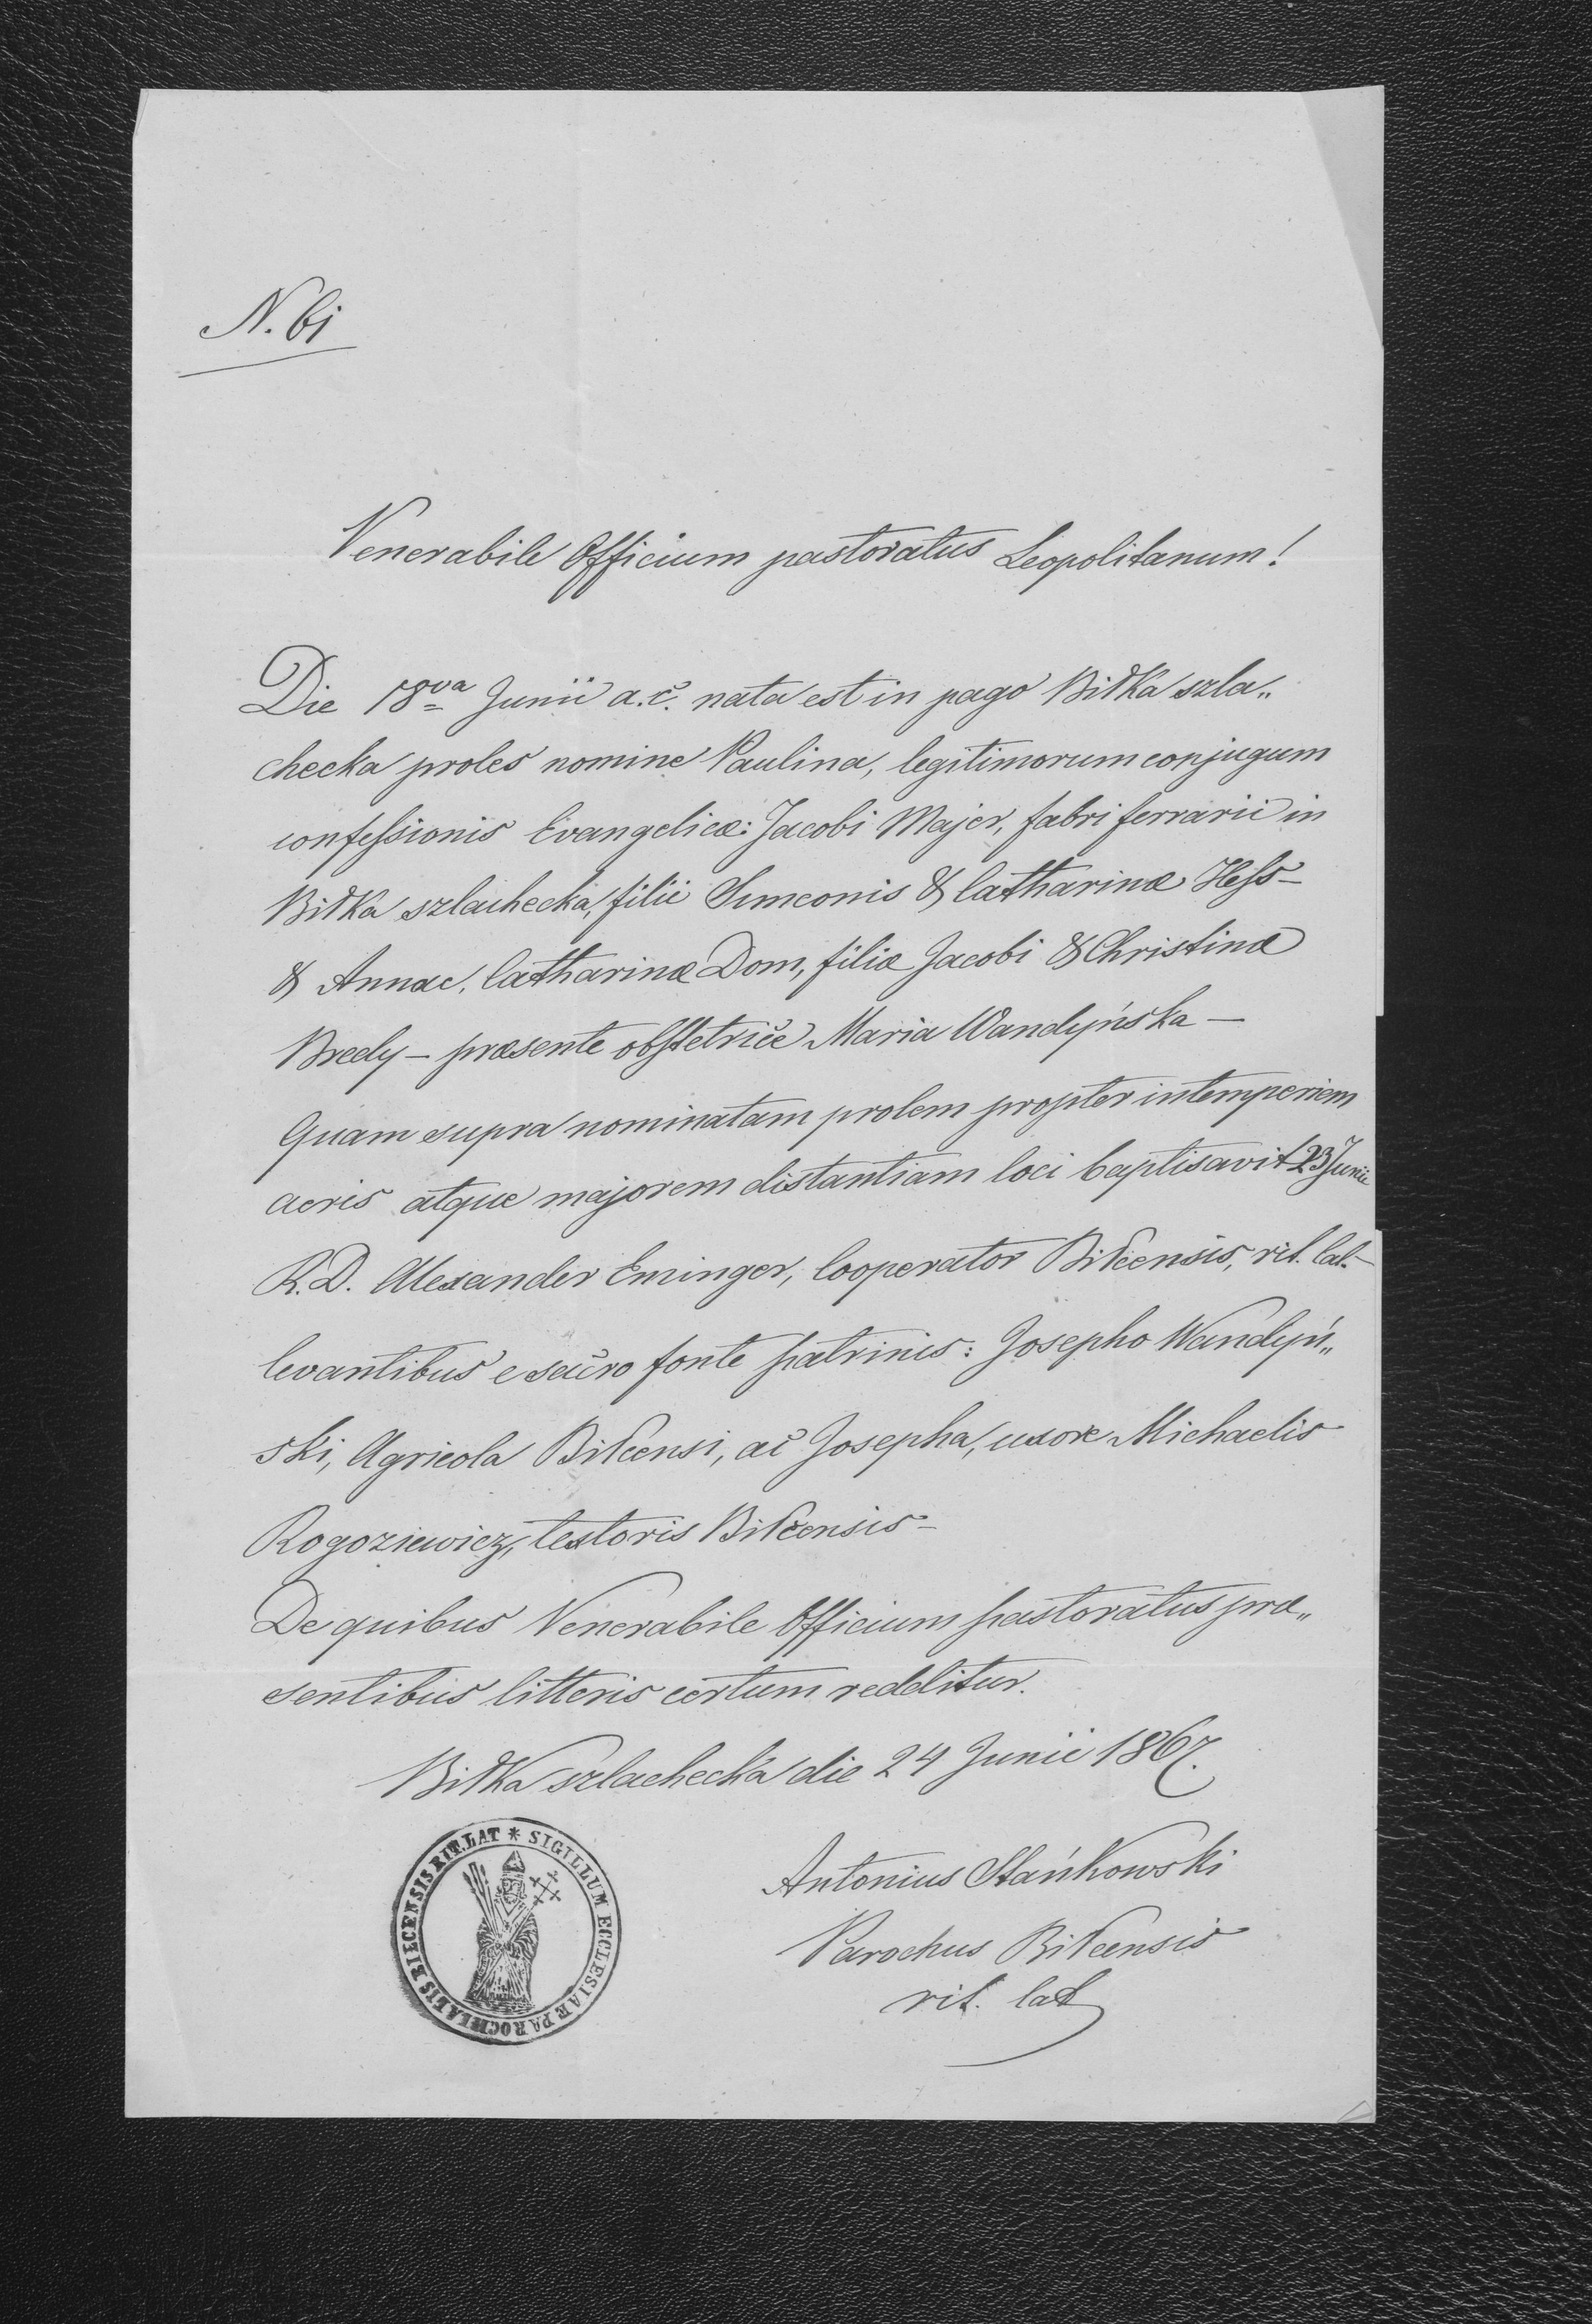 N. 61
Venerabile Officium pastoratus Leopolitanum!
Die 18va Junii a.c. nata est in pago Biłka szla„
checka proles nomine Paulina, legitimorum conjugum
confessionis Evangelicæ: Jacobi Majer, fabri ferrarii in
Biłka szlachecka, filii Simeonis & Catharinæ Hess –
& Annae, Catharinæ Dom, filiæ Jacobi & Christinæ
Bredy – præsente obstetrice Maria Wandyńska –
Quam supra nominatam prolem propter intemperiem
aeris atque majorem distantiam loci baptisavit 23 Junii
R.D. Alexander Eminger, Cooperator Biłcensis, rit. lat. –
levantibus e sacro fonte patrinis: Josepho Wandyń„
ski, Agricola Biłcensi, ac Josepha, uxore Michaelis
Rogoziewicz, textoris Biłcensis –
De quibus Venerabile Officium pastoratus præ„
sentibus litteris certum redditur.
Biłka szlachecka die 24 Junii 1867.
Antonius Stańkowski
Parochus Biłcensis
rit. lat
SIGILLUM ECCLESIAE PAROCHIALIS BILCENSIS RIT. LAT *